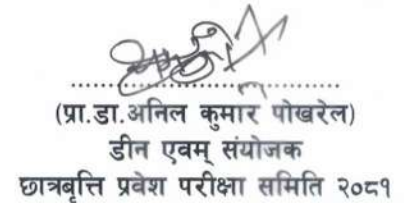 (प्रा.डा.अनिल कुमार पोखरेल)
डीन एवम् संयोजक
छात्रबृत्ति प्रवेश परीक्षा समिति २०८१